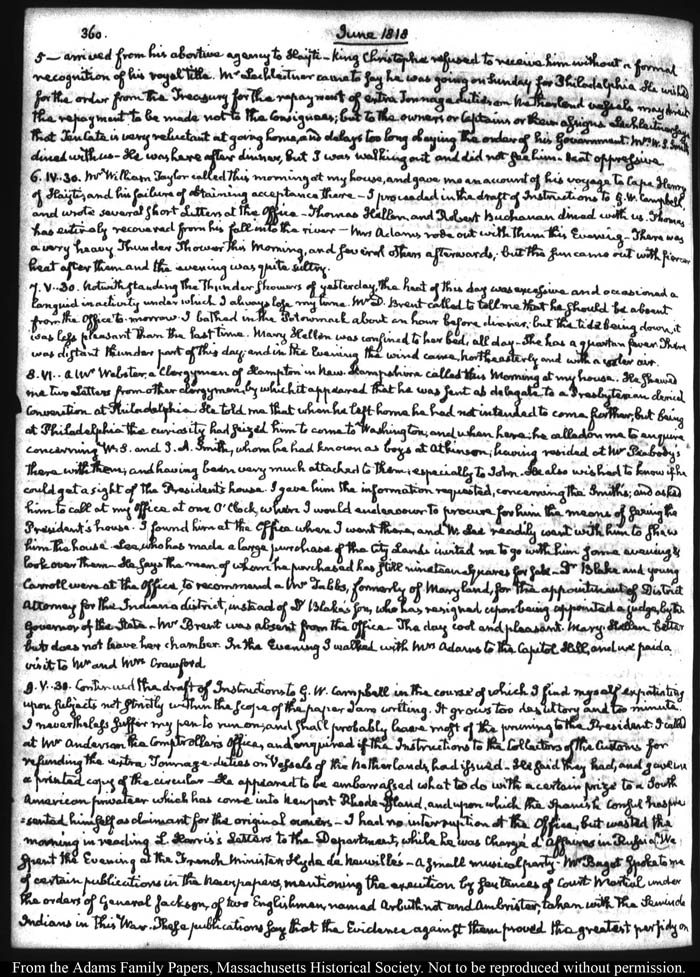 360.
June 1818
5 — arrived from his abortive agency to Hayti — King Christophe refused to receive him without a formal
recognition of his royal title. Mr Lechleitner came to say he was going on Sunday for Philadelphia. He wished
for the order from the Treasury for the repayment of extra Tonnage duties on Netherland vessels may direct
the repayment to be made not to the Consignees; but to the owners or Captains or their assigns. Lechleitner says
that Ten Cate is very reluctant at going home, and delays too long obeying the order of his Government. Mr W. S. Smith
dined with us — He was here after dinner, but I was walking out and did not see him. Heat oppressive
6. IV.30. Mr William Taylor called this morning at my house, and gave me an account of his voyage to Cape Henry
of Hayti; and his failure of obtaining acceptance there — I proceeded in the draft of Instructions to G. W. Campbell,
and wrote several short Letters at the Office — Thomas Hellen, and Robert Buchanan dined with us. Thomas
has entirely recovered from his fall into the river — Mrs Adams rode out with them this Evening — There was
a very heavy Thunder Shower this Morning, and several others afterwards, but the sun came out with fiercer
heat after them and the evening was quite sultry.
7. V.30. Notwithstanding the Thunder Showers of yesterday, the heat of this day was excessive and occasioned a
languid inactivity under which I always lose my time. Mr D. Brent called to tell me that he should be absent
from the Office to-morrow. I bathed in the Potowmack about an hour before dinner, but the tide being down, it
was less pleasant than the last time. Mary Hellen was confined to her bed, all day. She has a quartan fever. There
was distant thunder part of this day, and in the Evening the wind came, northeasterly and with a cooler air.
8. VI. . A Mr Webster, a Clergyman of Hampton in New Hampshire called this Morning at my house. He shewed
me two Letters from other clergymen, by which it appeared that he was sent as delegate to a Presbyterian clerical
Convention at Philadelphia. He told me that when he left home he had not intended to come further, but being
at Philadelphia the curiosity had seized him to come to Washington; and when here he called on me to enquire
concerning W. S. and J. A. Smith, whom he had known as boys at Atkinson, having resided at Mr Peabody's
there with them; and having been very much attached to them; especially to John. He also wished to know if he
could get a sight of the President's house. I gave him the information requested, concerning the Smiths, and asked
him to call at my Office at one O'Clock, when I would endeavour to procure for him the means of seeing the
President's house. I found him at the Office when I went there, and W. Lee readily went with him to shew
him the house. Lee, who has made a large purchase of the City Lands invited me to go with him some evening &
look over them. He says the man of whom he purchased has still nineteen squares for sale — Dr Blake and young
Carroll were at the Office, to recommend a Mr Tabbs, formerly of Maryland, for the appointment of District
Attorney for the Indiana district, instead of Dr Blake's Son, who has resigned, upon being appointed a judge, by the
Governor of the State — Mr Brent was absent from the Office. The day cool and pleasant. Mary Hellen better
but does not leave her chamber. In the Evening I walked with Mrs Adams to the Capitol Hill, and we paid a
visit to Mr and Mrs Crawford
9. V. 30. Continued the draft of Instructions to G. W. Campbell in the course of which I find myself expatiating
upon subjects not strictly within the scope of the paper I am writing. It grows too desultory and too minute.
I nevertheless suffer my pen to run on, and shall probably leave most of the pruning to the President. I called
at Mr Anderson the Comptroller's Office, and enquired if the Instructions to the Collectors of the Customs for
refunding the extra Tonnage duties on Vessels of the Netherlands, had issued. He said they had, and gave me
a printed copy of the circular — He appeared to be embarrassed what to do with a certain prize to a South
American privateer which has come into Newport Rhode-Island, and upon which the Spanish Consul has pre
=sented himself as claimant for the original owners — I had no interruption at the Office, but wasted the
morning in reading L. Harris's Letters to the Department, while he was Chargé d'Affaires in Russia. We
spent the Evening at the French Minister Hyde de Neuville's — A small musical party — Mr Bagot spoke to me
of certain publications in the Newspapers, mentioning the execution by sentences of Court Martial under
the orders of General Jackson, of two Englishmen, named Arbuthnot and Ambrister, taken with the Seminole
Indians in this War. These publications say that the Evidence against them proved the greatest perfidy on
From the Adams Family Papers, Massachusetts Historical Society. Not to be reproduced without permission